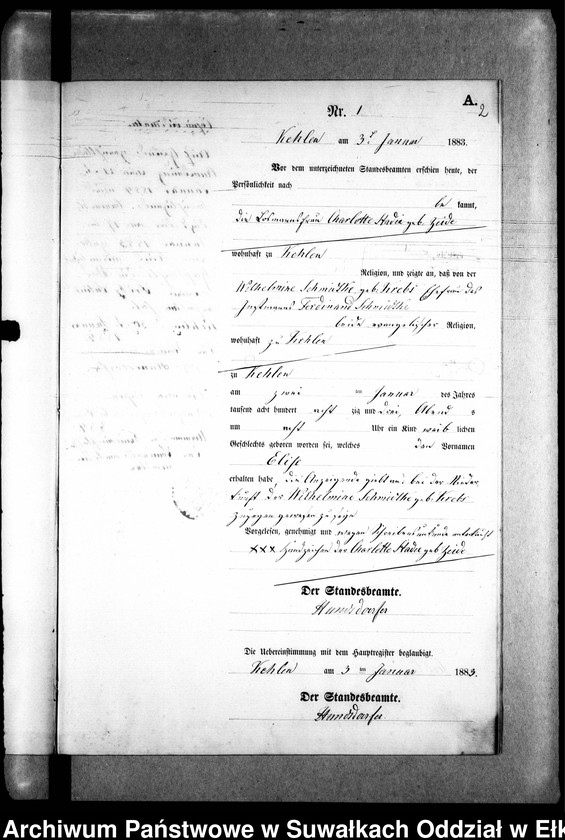 A.
2
Nr. 1
Kehlen am 3ᵗ Januar 1883.
Vor dem unterzeichneten Standesbeamten erschien heute, der
Persönlichkeit nach
be kannt,
die Losmannsfrau Charlotte Stadie geb. Zeide
wohnhaft zu Kehlen
Religion, und zeigte an, daß von der
Wilhelmine Schmidtke geb. Krebs Ehefrau des
Instmanns Ferdinand Schmidtke
beide evangelischer Religion,
wohnhaft zu Kehlen
zu Kehlen
am zwei ten Januar des Jahres
tausend acht hundert acht zig und drei, Abend s
um acht Uhr ein Kind weib lichen
Geschlechts geboren worden sei, welches den Vornamen
Elise
erhalten habe, die Anzeigende giebt an bei der Nieder
kunft der Wilhelmine Schmidtke geb. Krebs
zugegen gewesen zu sein
Vorgelesen, genehmigt und wegen Schreibensunkunde unterkreuzt
XXX Handzeichen der Charlotte Stadie geb Zeide
Der Standesbeamte.
Hunsdorfer
Die Uebereinstimmung mit dem Hauptregister beglaubigt.
Kehlen am 3 ten Januar 1883.
Der Standesbeamte.
Hunsdorfer
Archiwum Państwowe w Suwałkach Oddział w Ełk